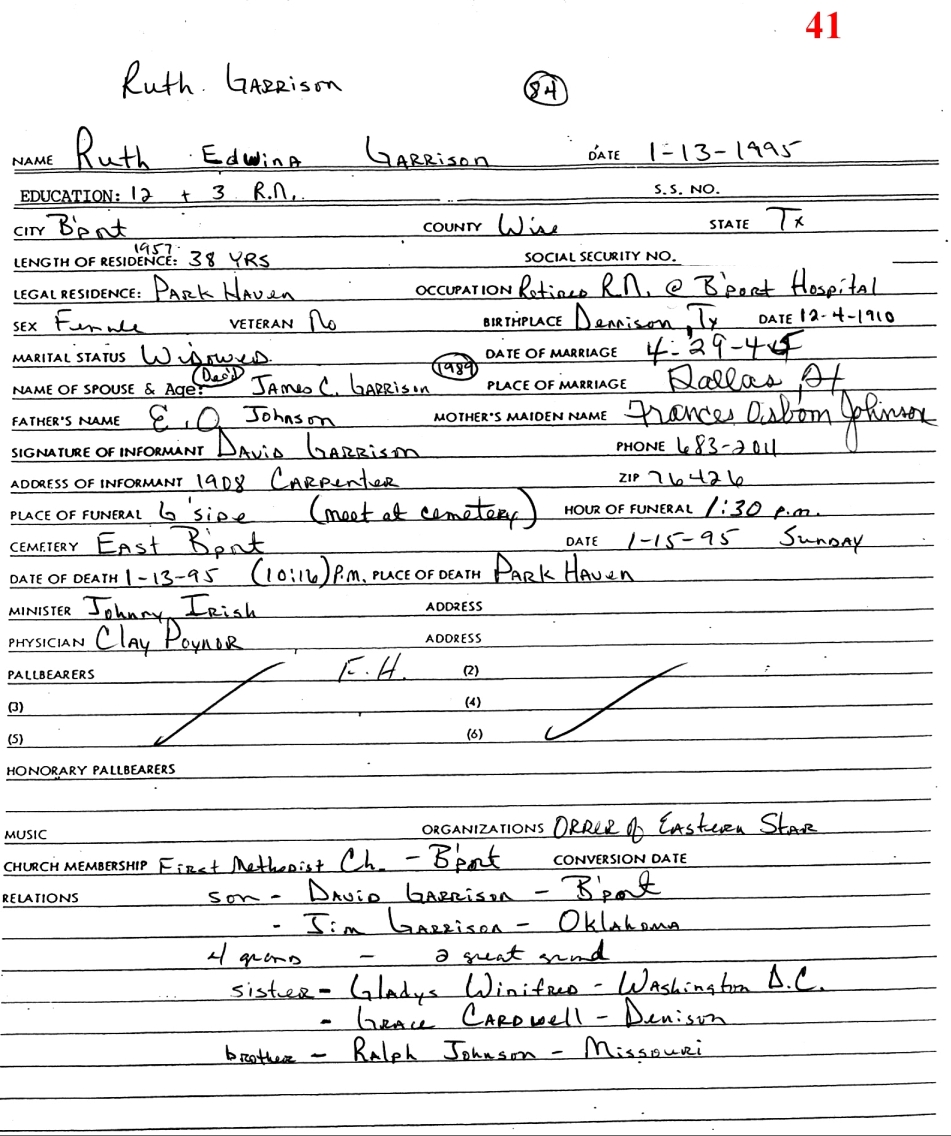 41
Ruth. GARRison
84
NAME Ruth Edwina GARRison DATE 1-13-1995
EDUCATION: 12 + 3 R.N. S.S. NO.
CITY B'port COUNTY Wise STATE Tx
1957
LENGTH OF RESIDENCE: 38 YRS SOCIAL SECURITY NO.
LEGAL RESIDENCE: PARK HAVEN OCCUPATION Retired R.N. @ B'port Hospital
SEX Female VETERAN No BIRTHPLACE Dennison, Tx DATE 12-4-1910
MARITAL STATUS Widowed DATE OF MARRIAGE 4-29-45
NAME OF SPOUSE & Age: Dec'd JAMES C. GARRison 1989 PLACE OF MARRIAGE Dallas,
FATHER'S NAME E. O. Johnson MOTHER'S MAIDEN NAME Frances Osborn Johnson
SIGNATURE OF INFORMANT DAVID GARRISON PHONE 683-2011
ADDRESS OF INFORMANT 1908 CARPenter ZIP 76426
PLACE OF FUNERAL G'side (meet at cemetery) HOUR OF FUNERAL 1:30 p.m.
CEMETERY EAST B'port DATE 1-15-95 SUNDAY
DATE OF DEATH 1-13-95 (10:16) P.M. PLACE OF DEATH PARK HAVEN
MINISTER Johnny IRish ADDRESS
PHYSICIAN CLAY POYNOR ADDRESS
PALLBEARERS F.H. (2)
(3) (4)
(5) (6)
HONORARY PALLBEARERS
MUSIC ORGANIZATIONS ORDER of EASTERN STAR
CHURCH MEMBERSHIP First Methodist Ch. - B'port CONVERSION DATE
RELATIONS son - DAVID GARRISON - B'port
- Jim GARRISON - OKLAHOMA
4 grand - 2 great grand
sister - Gladys Winifred - WAshington D.C.
- GRACE CARDWELL - Denison
brother - RALph Johnson - Missouri